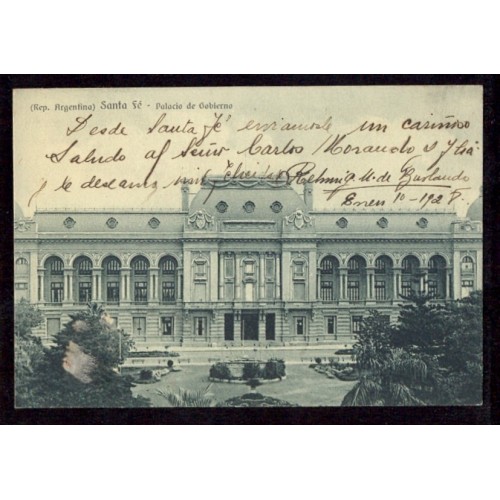 (Rep. Argentina) Santa Fé - Palacio de Gobierno
Desde Santa Fé enviamosle un cariñoso
Saludo al Señor Carlos
y le deseamos felicidad M. de
Enero 10-1928.